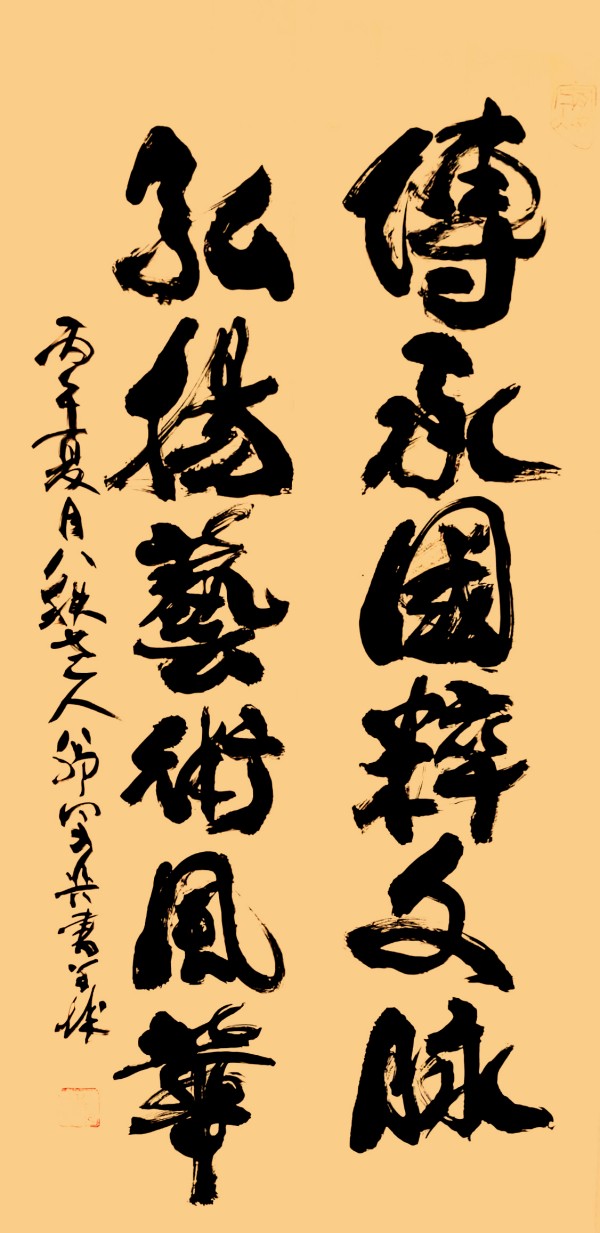 傳承國粹文脉
弘揚藝術風華
丙午夏月八秩老人